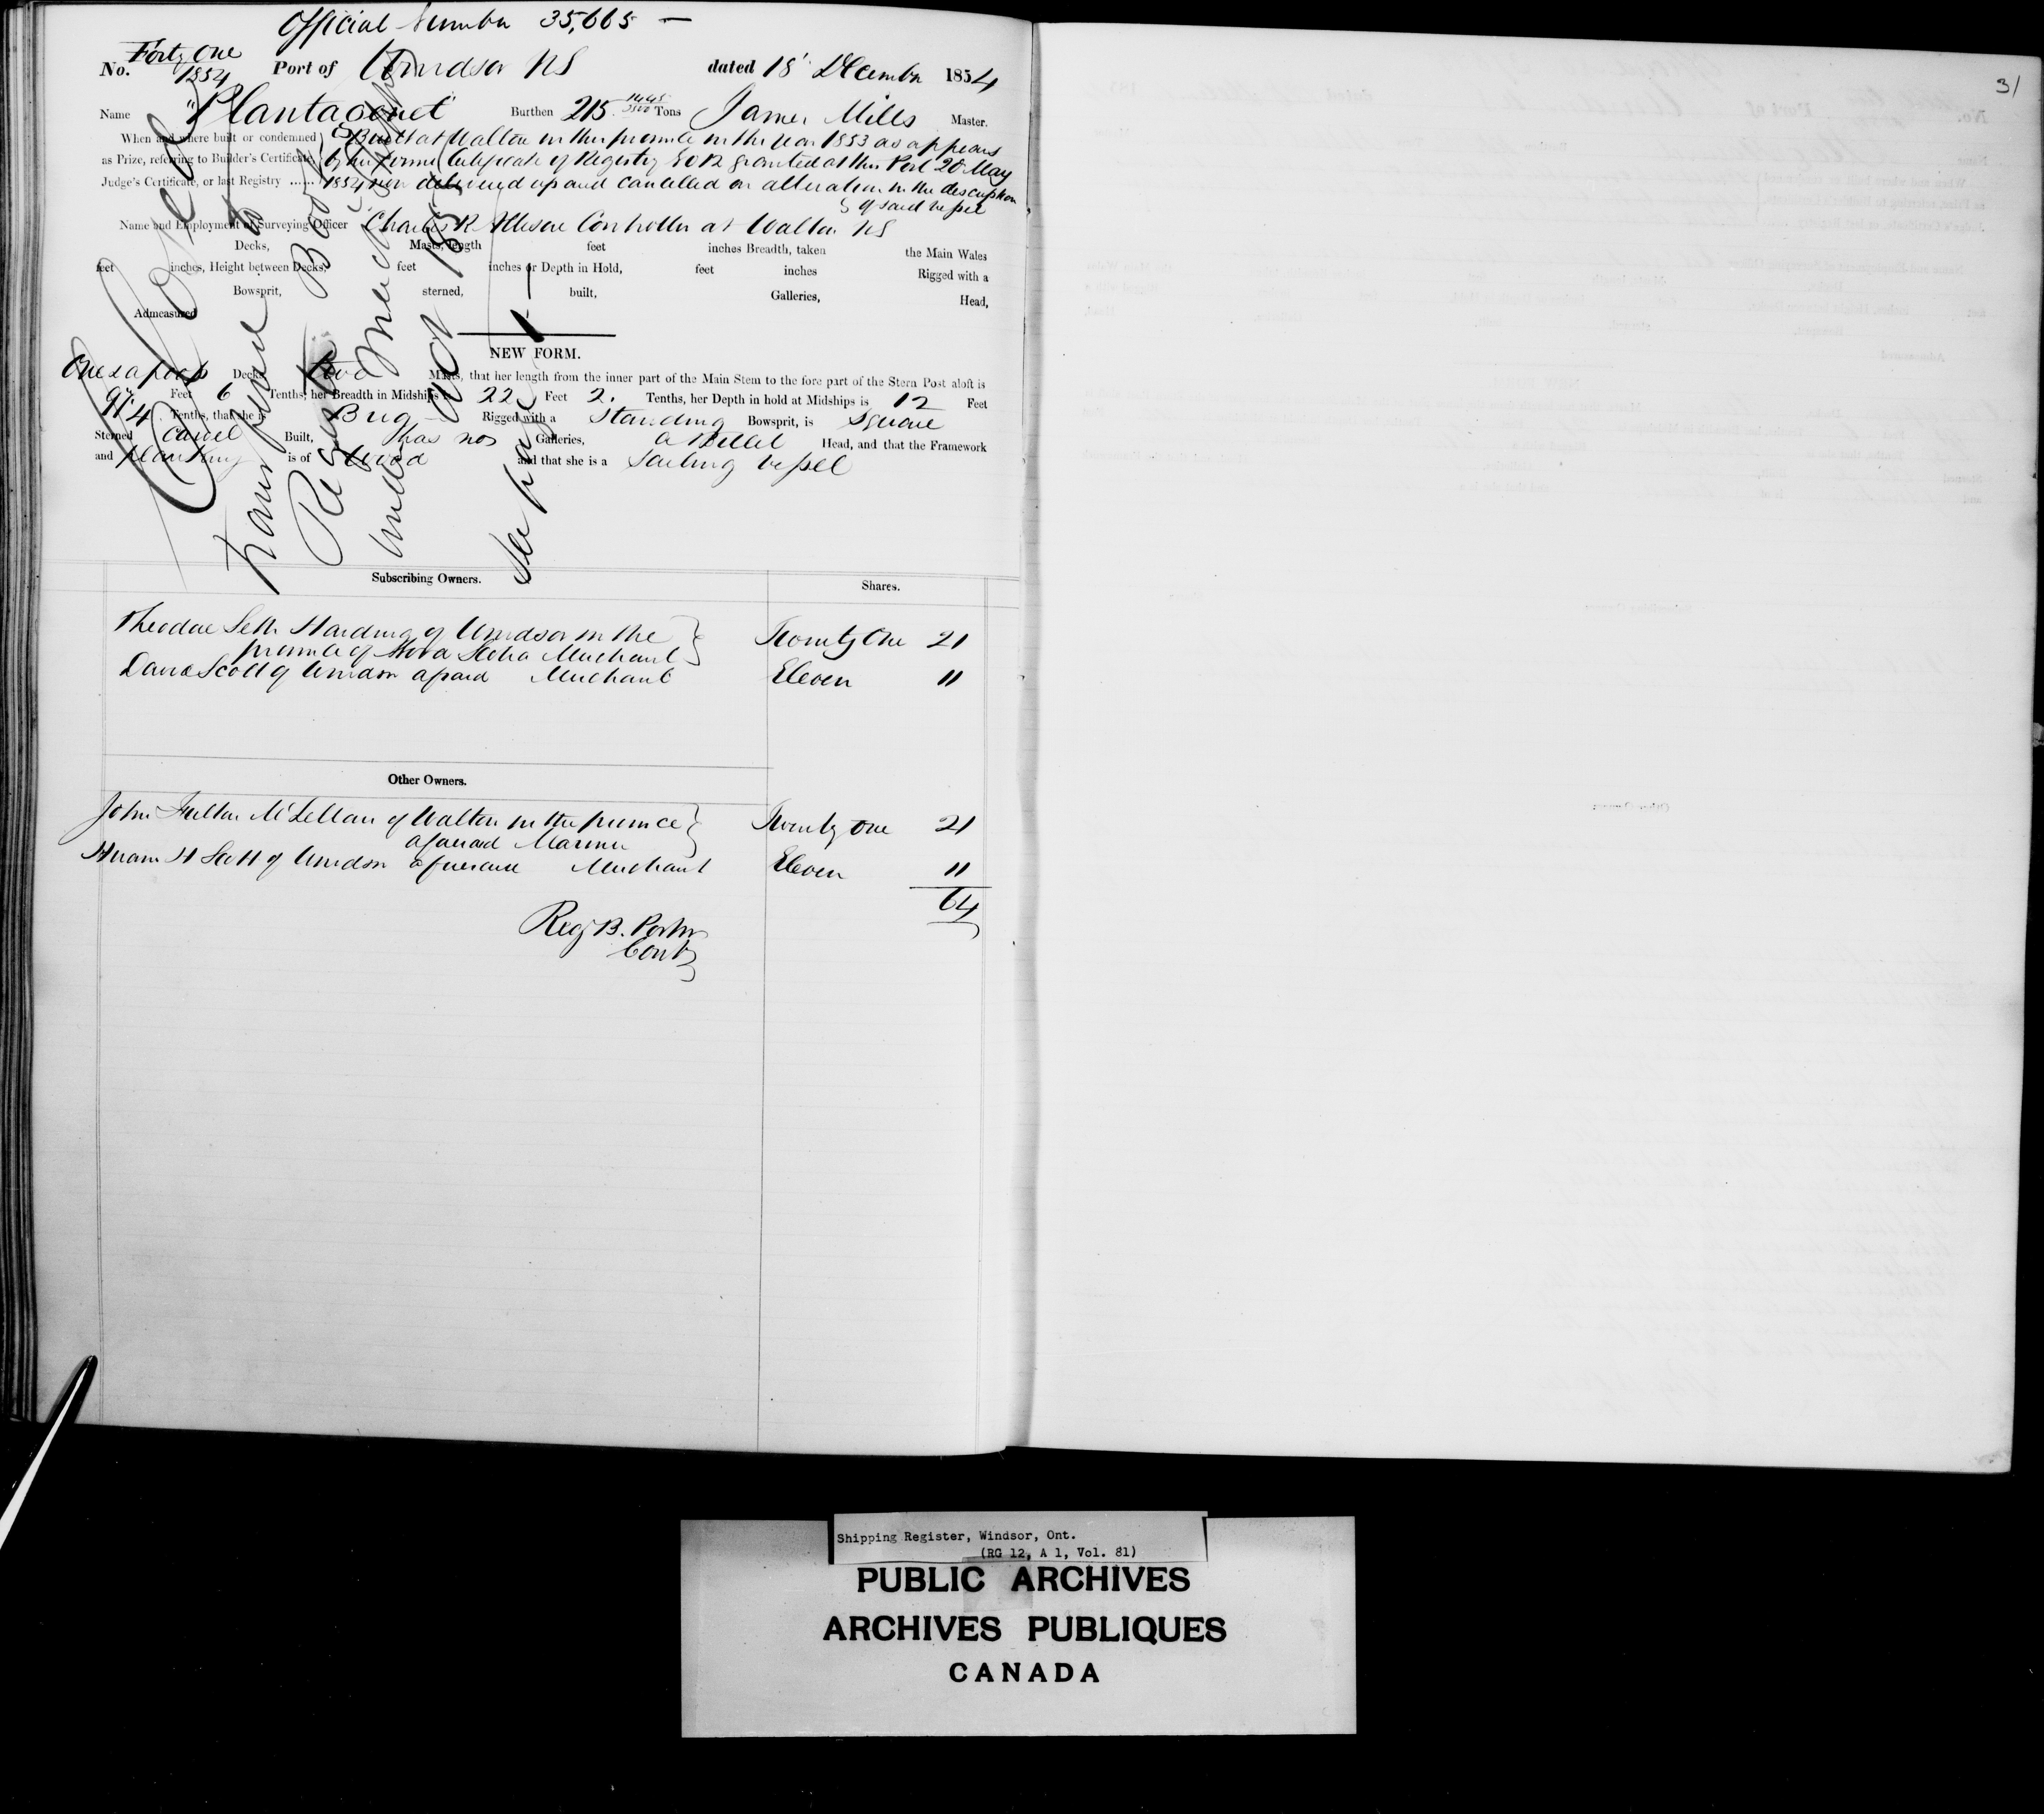 Official Number 35,665 —
No. Forty One 1854 Port of Windsor NS dated 18' December 1854
Name "Plantagenet Burthen 215 1445/3500 Tons James Mills Master.
When and where built or condemned as Prize, referring to Builder's Certificate, Judge's Certificate, or last Registry ......
Built at Walton in this province in the year 1853 as appears
by her former Certificate of Registry No 12 granted at this Port 20 May
1854 now delivered up and cancelled on alteration in the description
of said vessel
Name and Employment of Surveying Officer Charles R Allison Controller at Walton NS
Decks, Masts, length feet inches Breadth, taken the Main Wales
feet inches, Height between Decks, feet inches or Depth in Hold, feet inches Rigged with a
Bowsprit, sterned, built, Galleries, Head,
Admeasured
NEW FORM.
One & a poop Decks Two Masts, that her length from the inner part of the Main Stem to the fore part of the Stern Post aloft is
97 Feet 6 Tenths, her Breadth in Midships is 22 Feet 2. Tenths, her Depth in hold at Midships is 12 Feet
4 Tenths, that she is Brig Rigged with a Standing Bowsprit, is Square
Sterned Carvel Built, has no Galleries, a Billet Head, and that the Framework
and planking is of Wood and that she is a Sailing vessel
Closed
transferred to
Register Book
under Act 185
See page 1
Subscribing Owners. Shares.
Theodore Seth Harding of Windsor in the
province of Nova Scotia Merchant Twenty One 21
David Scott of Windsor afsaid Merchant Eleven 11
Other Owners.
John Fulton McLellan of Walton in the province
aforesaid Mariner Twenty one 21
Hiram H Scott of Windsor aforesaid Merchant Eleven 11
64
Reg B. Porter
Contr
31
Shipping Register, Windsor, Ont.
(RG 12, A 1, Vol. 81)
PUBLIC ARCHIVES
ARCHIVES PUBLIQUES
CANADA